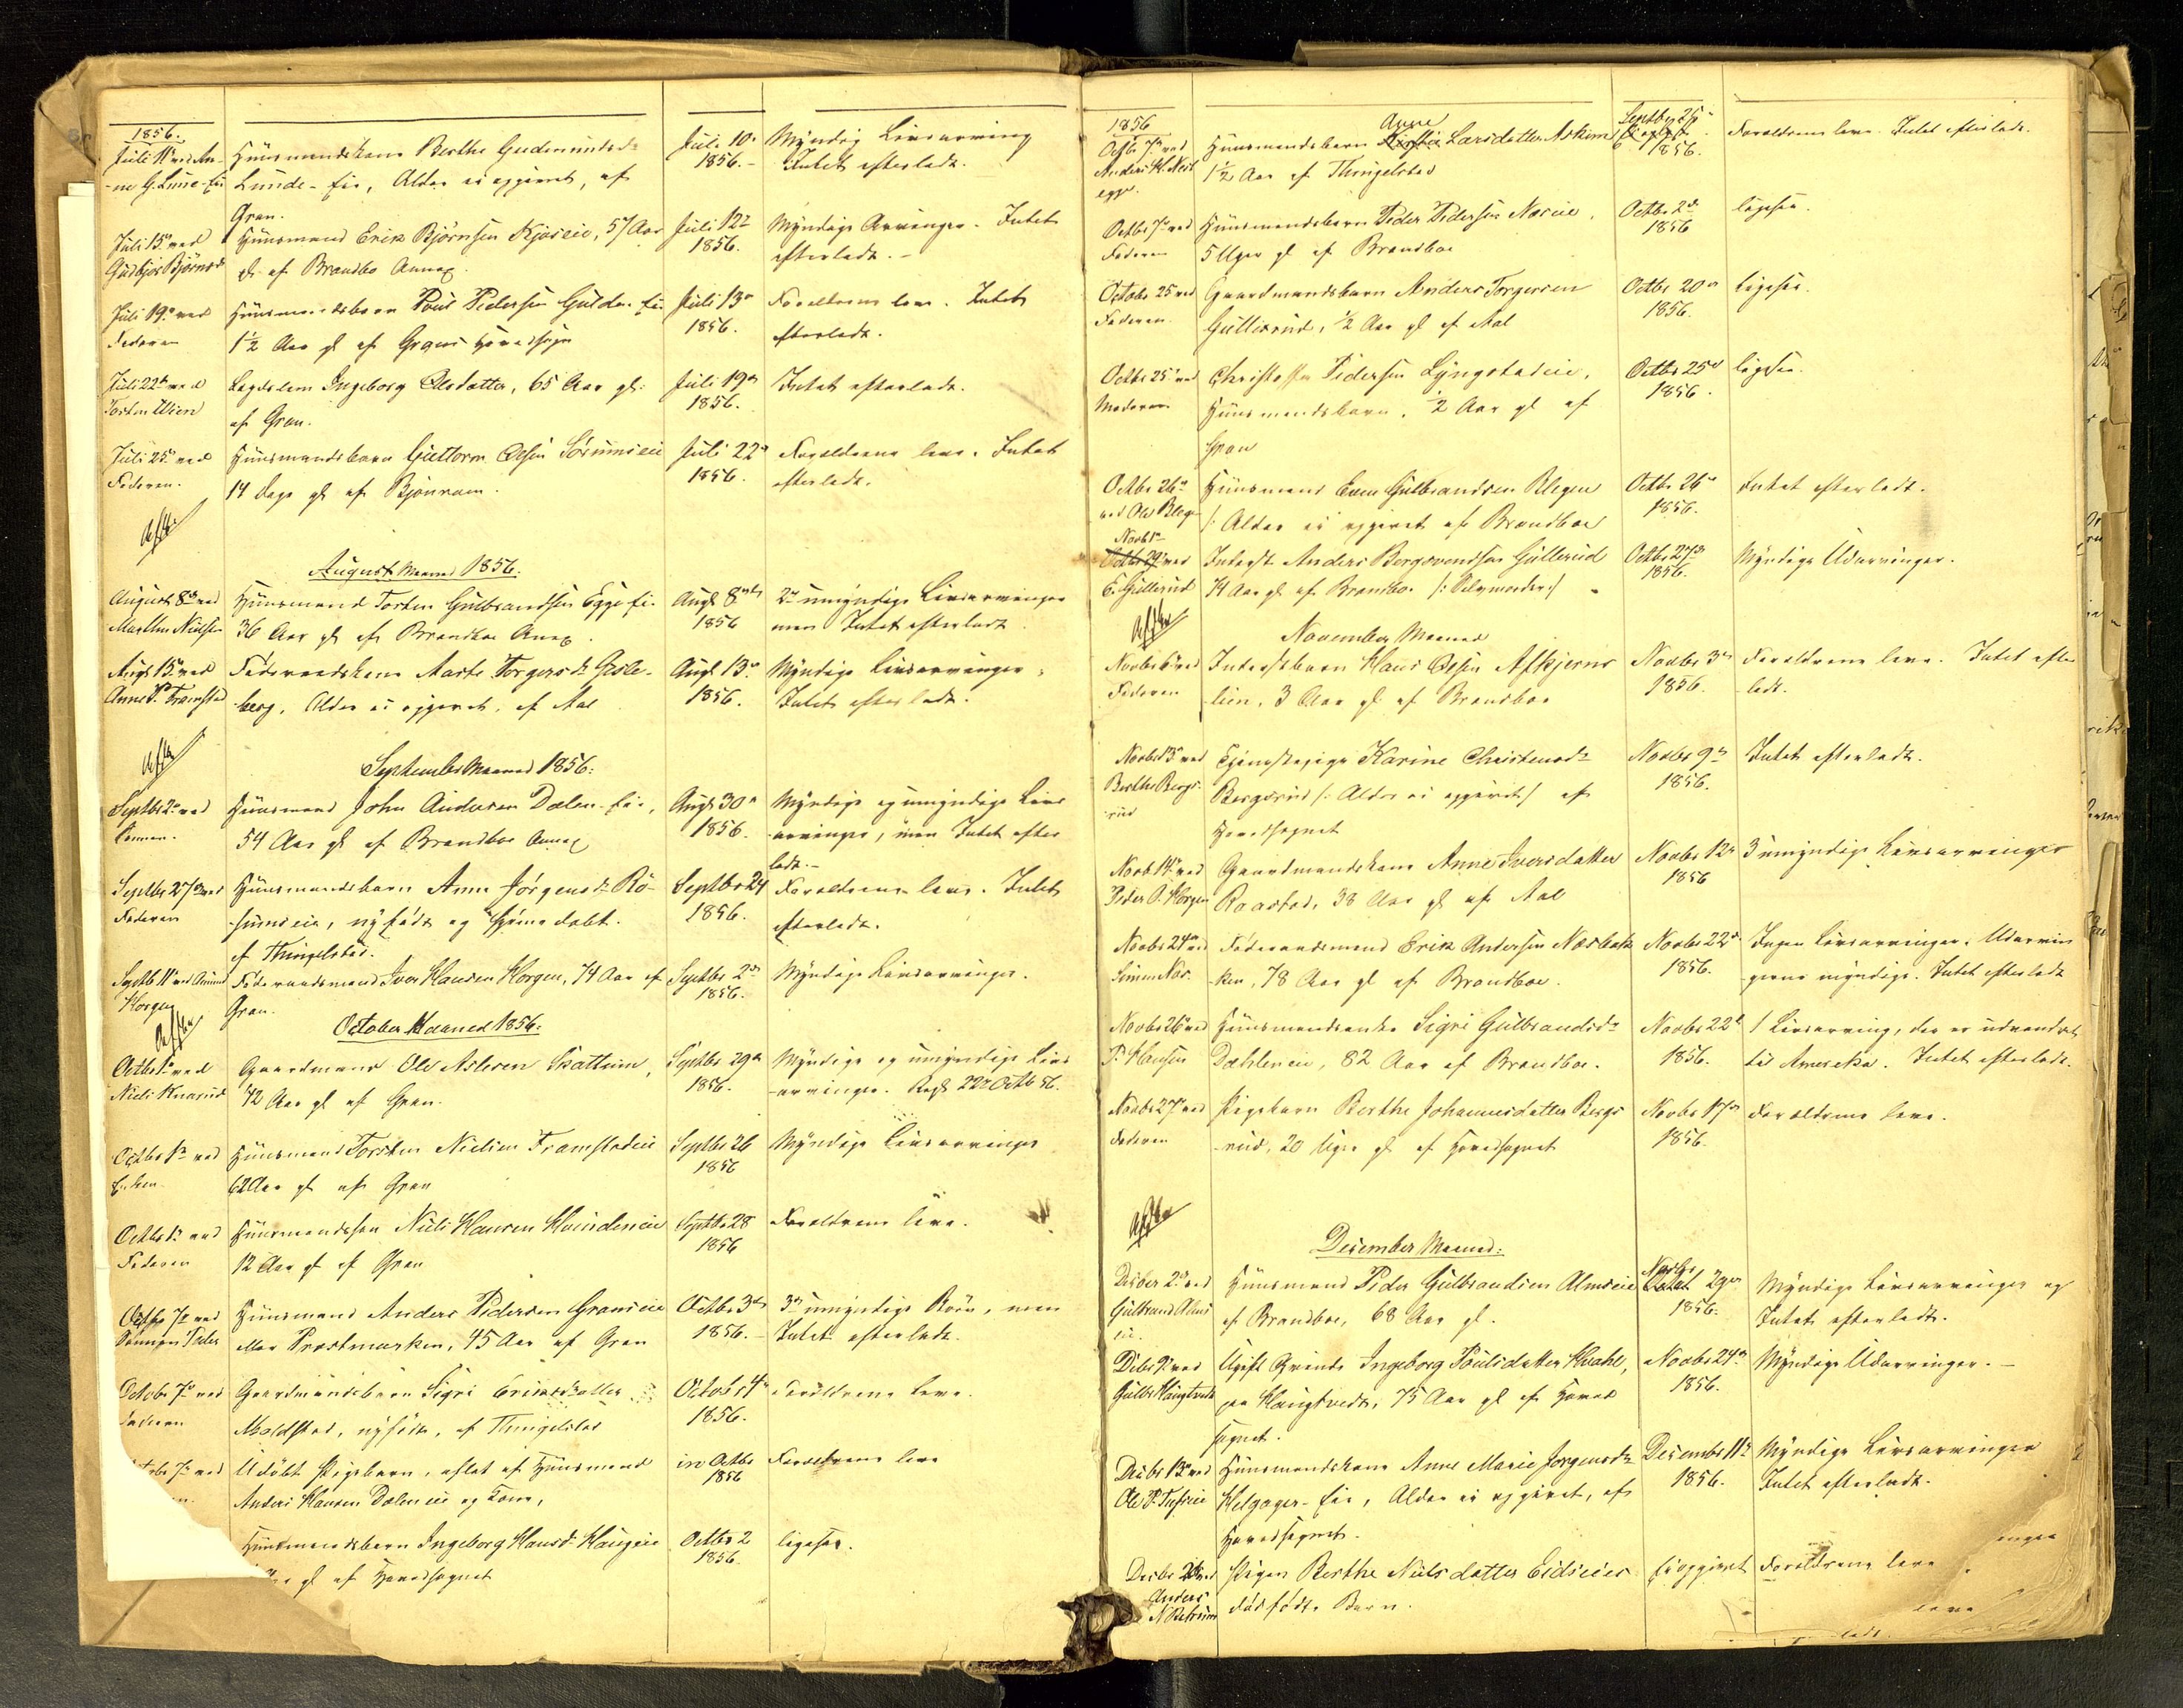 1856.
Juli 11te ved An-
ne G. Lunde-Eie
Huusmandskone Berthe Gudmundsd:
Lunde-Eie, Alder ei opgivet, af
Gran.
Juli 10de
1856.
Myndig Livsarving
Intet efterladt.
Juli 15de ved
Gudbjør Bjørnsd
Huusmand Erik Bjørnsen Kjøseie, 57 Aar
gl. af Brandbo Annex.
Juli 12te
1856.
Myndige Arvinger. Intet
efterladt.
Juli 19de ved
Faderen
Huusmandsbarn Poul Pedersen Gulden-Eie
1½ Aar gl af Grans Hovedsogn
Juli 13de
1856.
Forældrene leve. Intet
efterladt.
Juli 22de ved
Torsten Wien
Lægdslem Ingeborg Olsdatter, 65 Aar gl.
af Gran.
Juli 19de
1856.
Intet efterladt.
Juli 25de ved
Faderen.
Huusmandsbarn Guttorm Olsen Sørumseie
14 Dage gl af Bjønroen.
Juli 22de
1856.
Forældrene leve. Intet
efterladt.
August Maaned 1856.
August 8de ved
Marthe Nielsen
Huusmand Torsten Gulbrandsen Egge-Eie
36 Aar gl af Brandboe Anex.
Augt 8de
1856
2de umyndige Livsarvinger
men Intet efterladt.
Augt 15de ved
Anne P. Framstad
Føderaadskone Marte Torgersd: Gisle-
berg, Alder ei opgivet, af Aal
Augt 13de
1856.
Myndige Livsarvinger.
Intet efterladt.
September Maaned 1856:
Septbr 2de ved
Konen.
Huusmand John Andersen Dælen-Eie,
54 Aar gl af Brandboe Annex
Augt 30te
1856.
Myndige og umyndige Livs
arvinger, men Intet efter
ladt.
Septbr 27de ved
Faderen
Huusmandsbarn Anne Jørgensd: Rø-
sumseie, nyfødt og hjemmedøbt.
af Thingelstad.
Septbr 24
1856.
Forældrene leve. Intet
efterladt.
Septb 11te ved Amund
Horgen
Føderaadsmand Iver Hansen Horgen, 74 Aar af
Gran.
Septbr 2den
1856.
Myndige Livsarvinger.
October Maaned 1856:
Octbr 1ste ved
Niels Knarud
Gaardmand Ole Aslesen Skattum,
72 Aar gl af Gran.
Septbr 29de
1856.
Myndige og umyndige Livs
-arvinger. Regt 22de Octb 56.
Octbr 1ste ved
Enken
Huusmand Torsten Nielsen Framstadeie
62 Aar gl af Gran
Septbr 26
1856
Myndige Livsarvinger
Octbr 1ste ved
Faderen
Huusmandssøn Niels Hansen Hvindeneie
12 Aar gl af Gran
Septbr 28
1856
Forældrene leve.
Octbr 7de ved
Sønnen Peder
Huusmand Anders Pedersen Granseie
Præstmarken, 45 Aar af Gran
Octbr 3die
1856.
3de umyndige Børn, men
Intet efterladt.
Octobr 7de ved
Faderen
Gaardmandsbarn Sigri Ericksdatter
Moldstad, nyfødt, af Thingelstad
Octobr 4de
1856.
Forældrene leve.
7de ved
Udøbt Pigebarn, avlet af Huusmand
Anders Hansen Dælen eie og Kone,
1ste Octbr
1856
Forældrene leve
Huusmandsbarn Ingeborg Hansd: Haugeie
gl af Hovedsognet
Octbr 2
1856.
ligesaa.
1856
Octbr 7de ved
Anders H. Nest
egge.
Anne
Huusmandsbarn Larsdatter Askim
1½ Aar af Thingelstad
Septbr 25de
1856.
Forældrene leve. Intet efterladt.
Octbr 7de ved
Faderen
Huusmandsbarn Peder Pedersen Noreie,
5 Uger gl af Brandboe
Octbr 2den
1856
ligesaa.
Octobr 25 ved
Faderen.
Gaardmandsbarn Anders Torgersen
Gullixrud, ½ Aar gl af Aal
Octbr 20de
1856.
ligesaa.
Octbr 25de ved
Moderen
Christoffer Pedersen Lyngstadeie,
Huusmandsbarn, ½ Aar gl af
Gran
Octbr 25de
1856.
ligesaa.
Octbr 26de
ved Ole Bleg
Huusmand Even Gulbrandsen Blegen
/: Alder ei opgivet af Brandboe
Octbr 26de
1856.
Intet efterladt.
Novb 1ste
Octbr 29de ved
E. Gullerud
Inderst Anders Bergsvendsen Gullerud
74 Aar gl. af Brandboe /: Selvmorder:/
Octbr 27de
1856.
Myndige Udarvinger.
November Maaned
Novbr 6te ved
Faderen
Inderstbarn Hans Olsen Afskjerns
lien, 3 Aar gl af Brandboe
Novbr 3die
1856.
Forældrene leve. Intet efter
ladt.
Novbr 13de ved
Berthe Bergs-
rud
Tjenestepige Karine Christensd:
Bergsrud /: Alder ei opgivet:/ af
Hovedsognet
Novbr 9de
1856.
Intet efterladt.
Novb 14de ved
Peder O. Horgen
Gaardmandskone Anne Iversdatter
Raastad, 38 Aar gl af Aal
Novbr 12te
1856
3 umyndige Livsarvinger
Novbr 24de ved
Simen Nor.
Føderaadsmand Erik Andersen Norbak
ken, 78 Aar gl af Brandboe.
Novbr 22de
1856.
Ingen Livsarvinger. Udarvin
gerne myndige. Intet efterladt
Novbr 26de ved
P. Hansen
Huusmandsenke Sigri Gulbrandsd:
Dæhleneie, 82 Aar af Brandboe.
Novbr 22de
1856.
1 Livsarving, der er udvandret
til Amerika. Intet efterladt.
Novbr 27de ved
Faderen
Pigebarn Berthe Johannesdatter Bergs
rud, 20 Uger gl af Hovedsognet
Novbr 17de
1856.
Forældrene leve.
December Maaned:
Decber 2den ved
Gulbrand Alms
eie.
Huusmand Peder Gulbrandsen Almseie
af Brandboe, 68 Aar gl.
Novbr
29de
1856.
Myndige Livsarvinger og
Intet efterladt.
Dcbr 9de ved
Gulbr Haugtvedt
Ugift Qvinde Ingeborg Poulsdatter Hvahl,
paa Haugtvedt, 75 Aar gl af Hoved
sognet.
Novbr 24de
1856.
Myndige Udarvinger.
Decbr 13de ved
Ole P. Tufseie
Huusmandskone Anne Marie Jørgensd:
Helgager-Eie, Alder ei opgivet, af
Hovedsognet.
Decembr 11te
1856.
Myndige Livsarvinger
Intet efterladt.
Decbr 20de ved
Anders
N Rekrum
Pigen Berthe Nielsdatter Eidseies
dødfødte Barn.
Ei opgivet
Forældrene leve